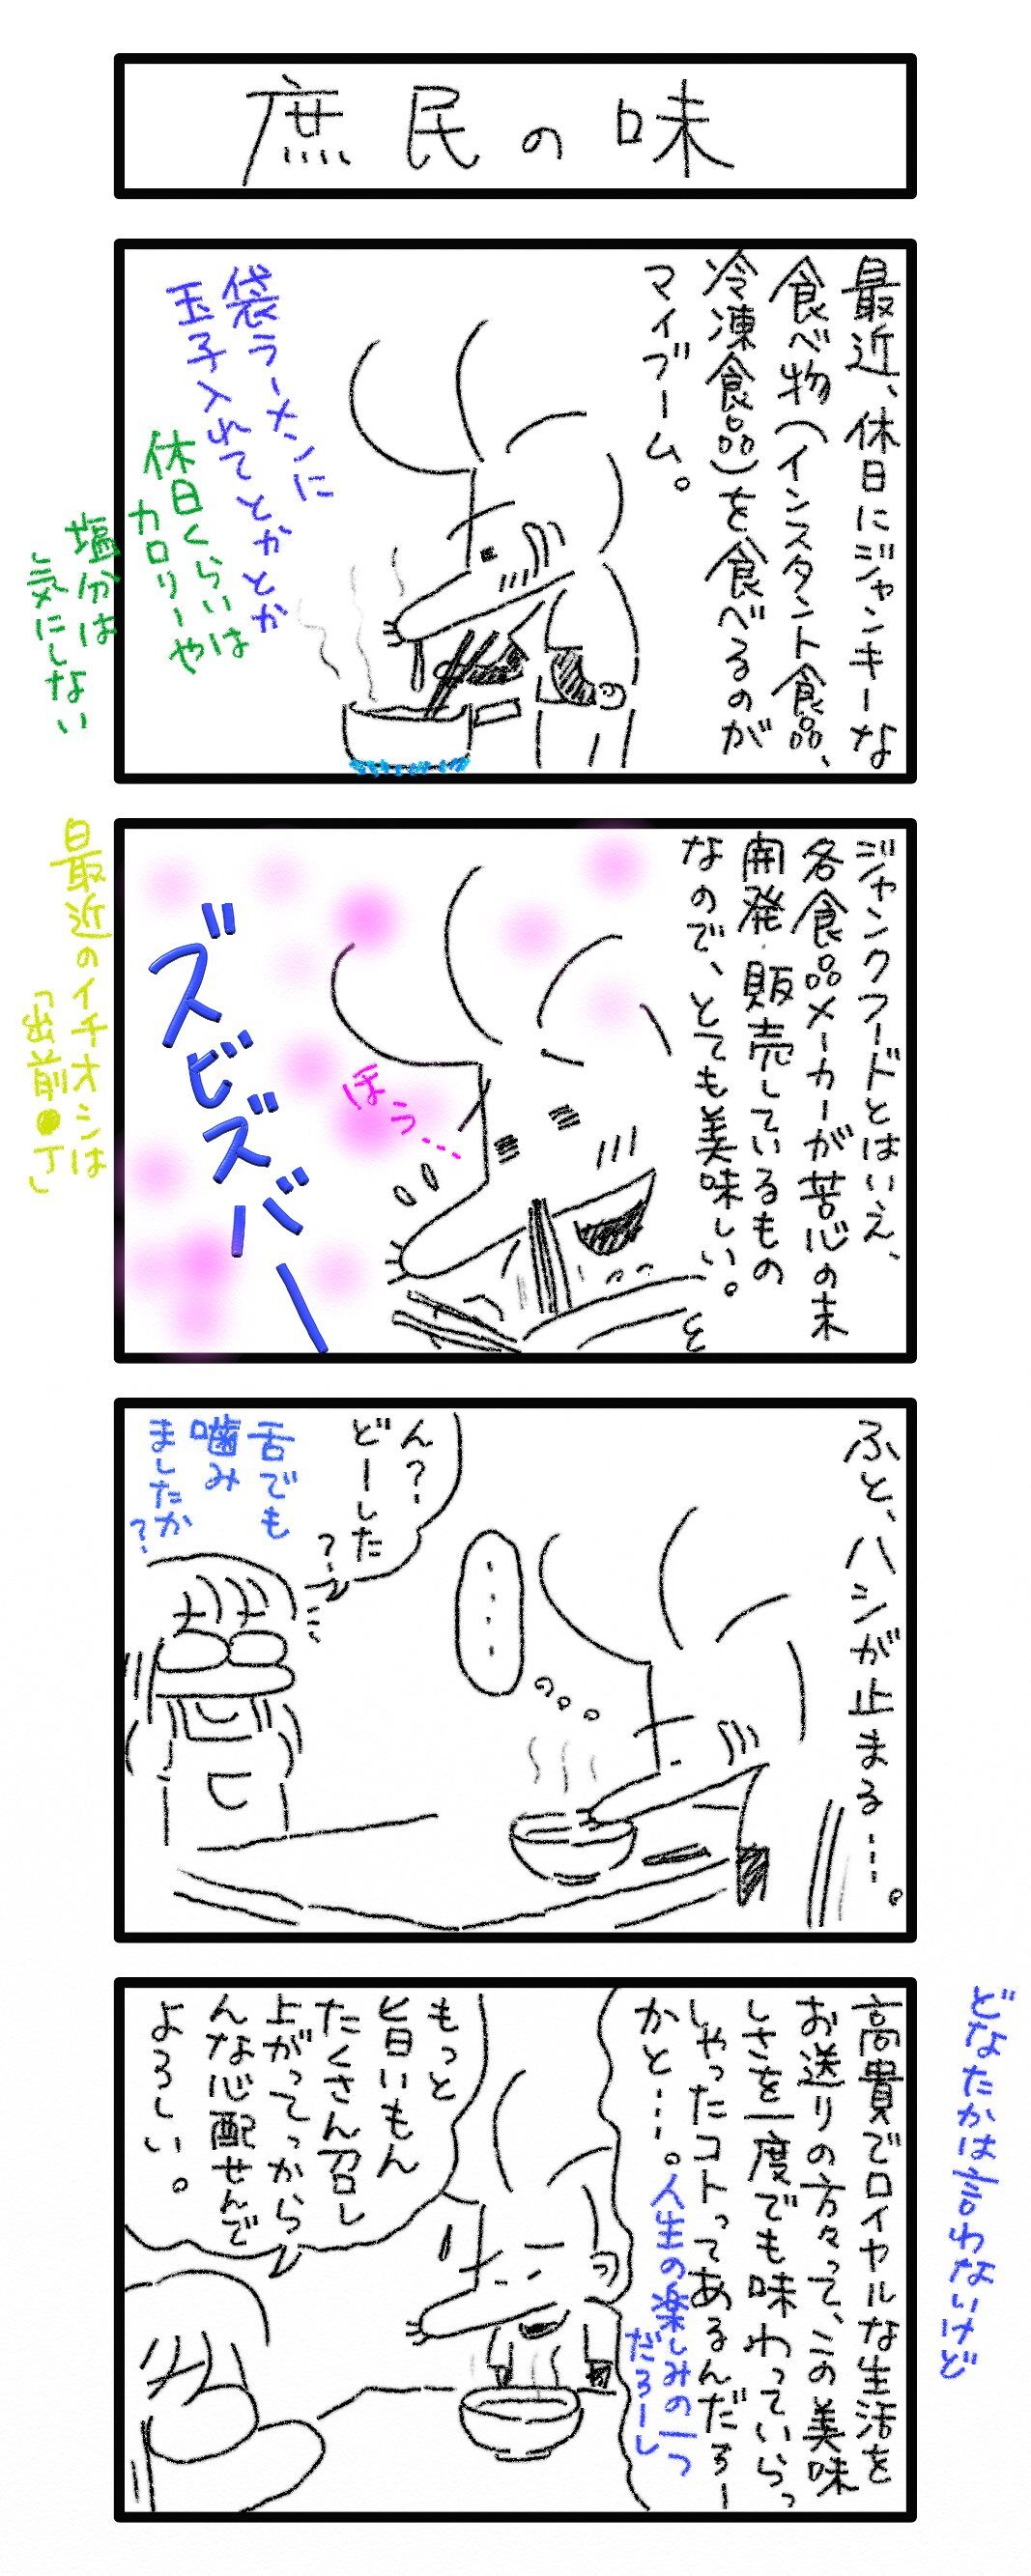 庶民の味
最近、休日にジャンキーな
食べ物(インスタント食品、
冷凍食品)を食べるのが
マイブーム。
袋ラーメンに
玉子入れてとかとか
休日くらいは
カロリーや
塩分は
気にしない
ジャンクフードとはいえ、
各食品メーカーが苦心の末
開発・販売しているもの
なので、とても美味しい。
ほぅ…
ズビズバー
最近のイチオシは
「出前●丁」
ふと、ハシが止まる…。
・・・・
ん?
どーした
?
舌でも
噛み
ましたか
?
どなたかは言わないけど
高貴でロイヤルな生活を
お送りの方々って、この美味
しさを一度でも味わっていらっ
しゃったコトってあるんだろー
かと…。
人生の楽しみの一つ
だろーし
もっと
旨いもん
たくさん召し
上がってっから
んな心配せんで
よろしい。